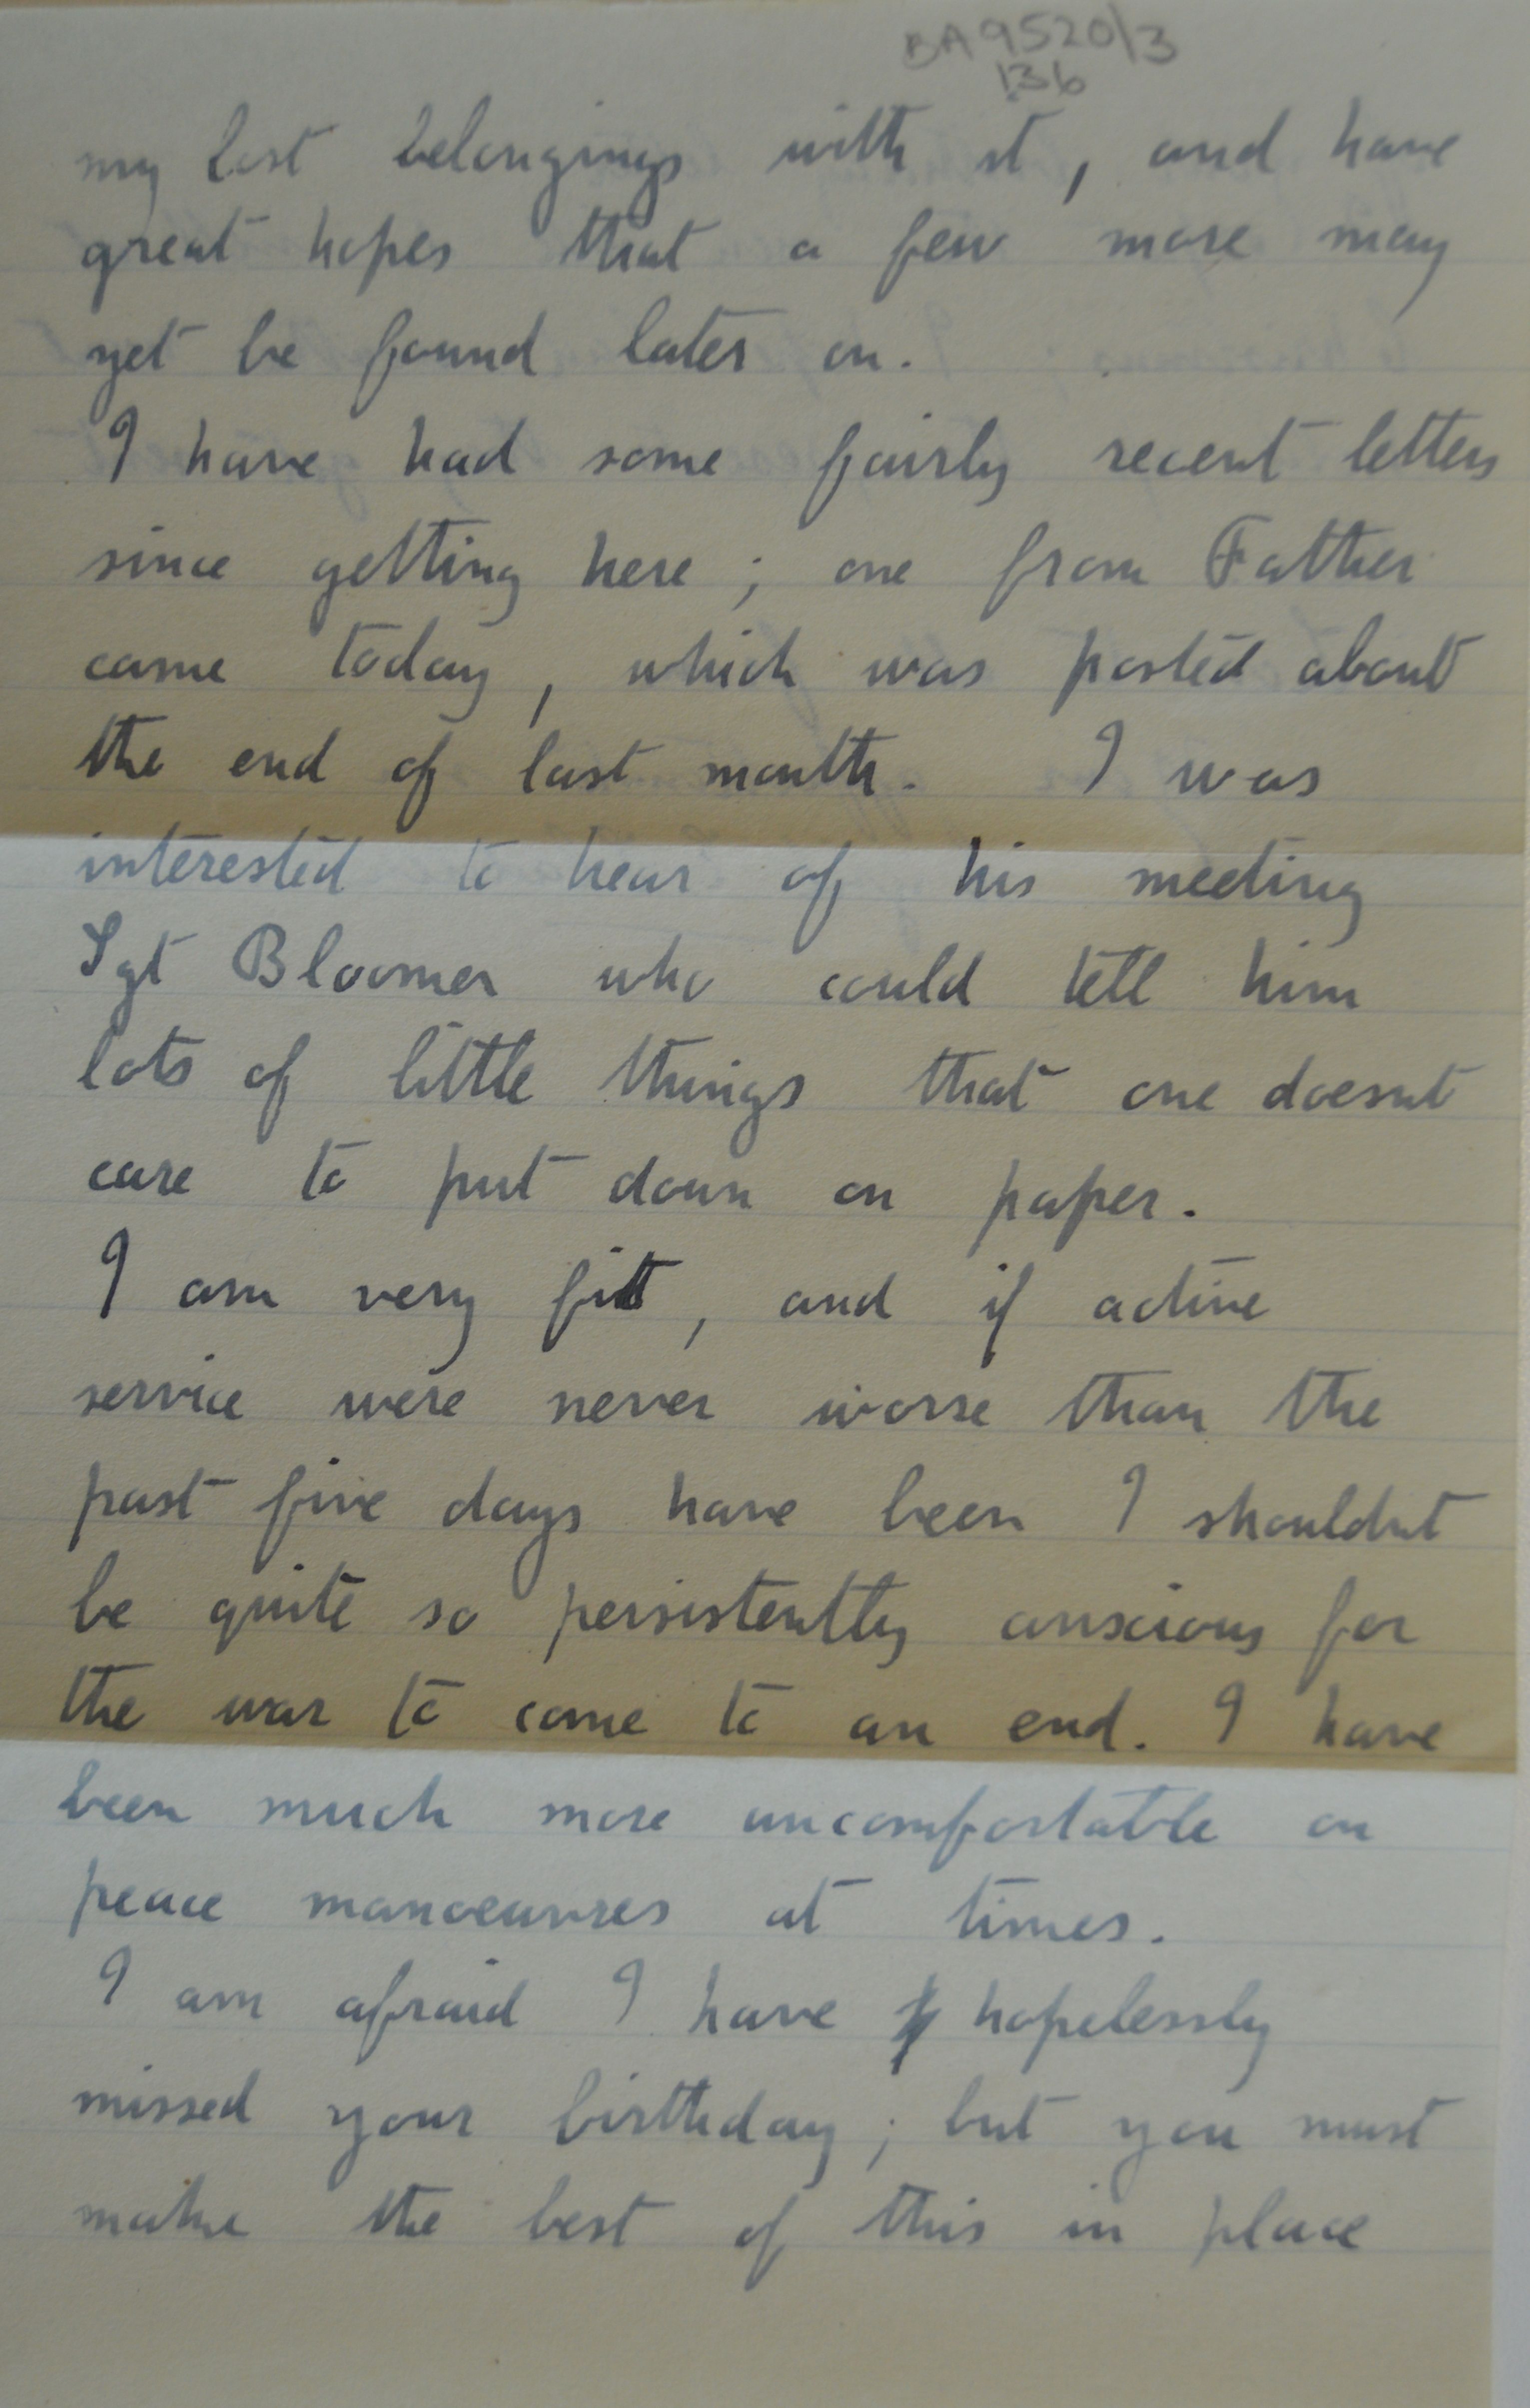 BA9520/3
136
my lost belongings with it, and have
great hopes that a few more may
yet be found later on.
I have had some fairly recent letters
since getting here; one from Father
came today, which was posted about
the end of last month. I was
interested to hear of his meeting
Sgt Bloomer who could tell him
lots of little things that one doesnt
care to put down on paper.
I am very fit, and if active
service were never worse than the
past five days have been I shouldnt
be quite so persistently anxious for
the war to come to an end. I have
been much more uncomfortable on
peace manoeuvres at times.
I am afraid I have hopelessly
missed your birthday; but you must
make the best of this in place